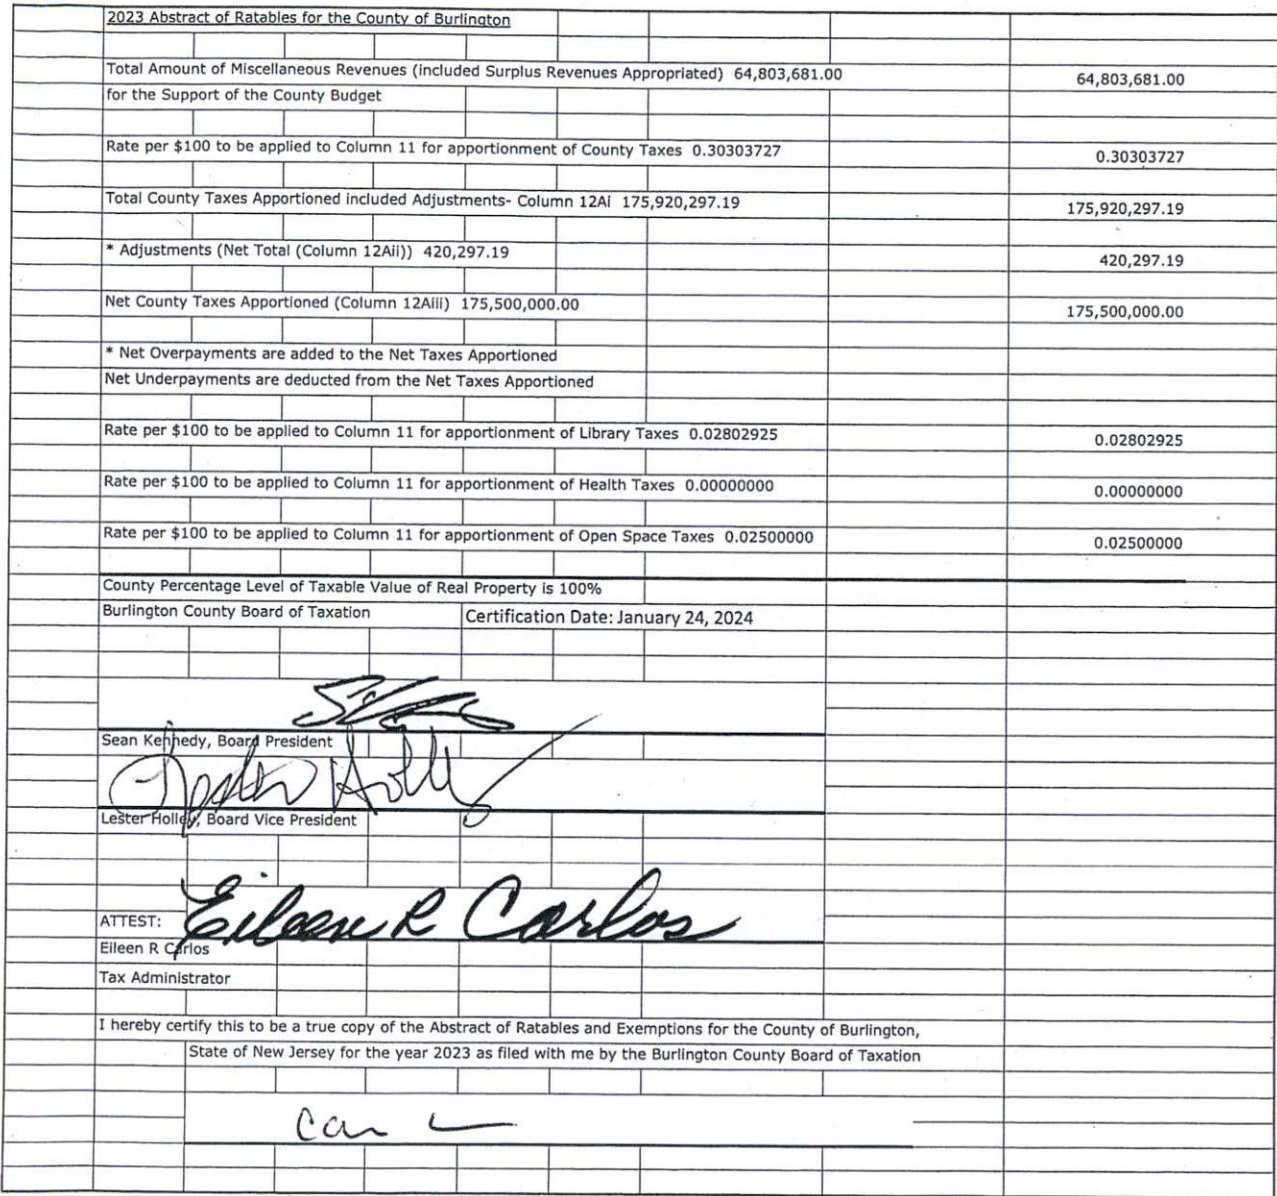 2023 Abstract of Ratables for the County of Burlington
Total Amount of Miscellaneous Revenues (included Surplus Revenues Appropriated) 64,803,681.00 64,803,681.00
for the Support of the County Budget
Rate per $100 to be applied to Column 11 for apportionment of County Taxes 0.30303727 0.30303727
Total County Taxes Apportioned included Adjustments- Column 12Ai 175,920,297.19 175,920,297.19
* Adjustments (Net Total (Column 12Aii)) 420,297.19 420,297.19
Net County Taxes Apportioned (Column 12Aiii) 175,500,000.00 175,500,000.00
* Net Overpayments are added to the Net Taxes Apportioned
Net Underpayments are deducted from the Net Taxes Apportioned
Rate per $100 to be applied to Column 11 for apportionment of Library Taxes 0.02802925 0.02802925
Rate per $100 to be applied to Column 11 for apportionment of Health Taxes 0.00000000 0.00000000
Rate per $100 to be applied to Column 11 for apportionment of Open Space Taxes 0.02500000 0.02500000
County Percentage Level of Taxable Value of Real Property is 100%
Burlington County Board of Taxation Certification Date: January 24, 2024
Sean Kennedy, Board President
Lester Holley, Board Vice President
ATTEST: Eileen R Carlos
Eileen R Carlos
Tax Administrator
I hereby certify this to be a true copy of the Abstract of Ratables and Exemptions for the County of Burlington,
State of New Jersey for the year 2023 as filed with me by the Burlington County Board of Taxation